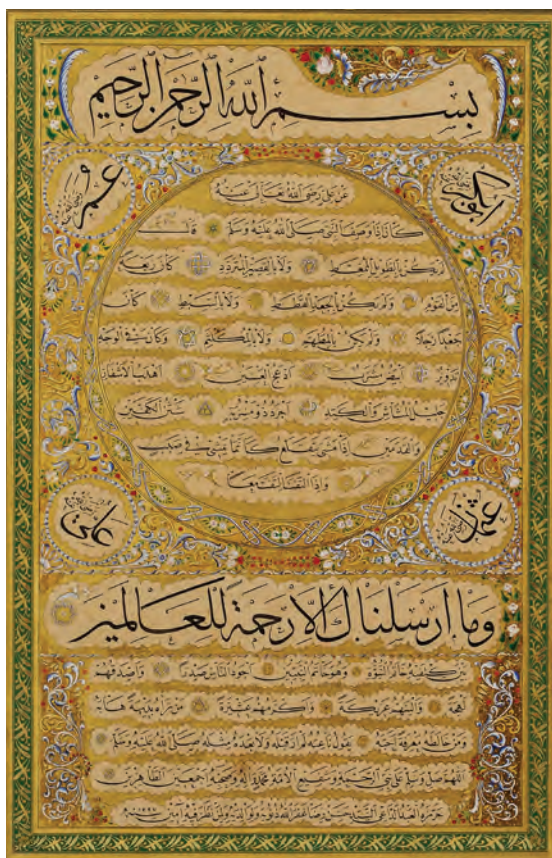 بسم الله الرحمن الرحيم
ابو بكر رضي الله عنه
عمر رضي الله عنه
عن علي رضي الله تعالى عنه
كان اذا وصف النبي صلى الله عليه وسلم قال
لم يكن بالطويل الممغط ولا بالقصير المتردد كان ربعة
من القوم ولم يكن بالجعد القطط ولا بالسبط كان
جعدا رجلا ولم يكن بالمطهم ولا بالمكلثم وكان في الوجه
تدوير ابيض مشرب ادعج العينين اهدب الاشفار
جليل المشاش والكتد اجرد ذو مسربة شثن الكفين
والقدمين اذا مشى تقلع كانما يمشي في صبب
واذا التفت التفت معا
عثمان رضي الله عنه
علي رضي الله عنه
وما ارسلناك الا رحمة للعالمين
بين كتفيه خاتم النبوة وهو خاتم النبيين اجود الناس صدرا واصدقهم
لهجة والينهم عريكة واكرمهم عشرة من رآه بديهة هابه
ومن خالطه معرفة احبه يقول ناعته لم ار قبله ولا بعده مثله صلى الله عليه وسلم
اللهم صل وسلم على نبي الرحمة وشفيع الامة محمد وآله وصحبه اجمعين الطاهرين
حرره العبد الداعي السيد حسن رضا غفر الله ذنوبه